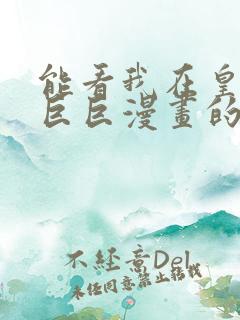 能看我在皇
巨巨漫畫的
不經意Del
未经同意禁止转载